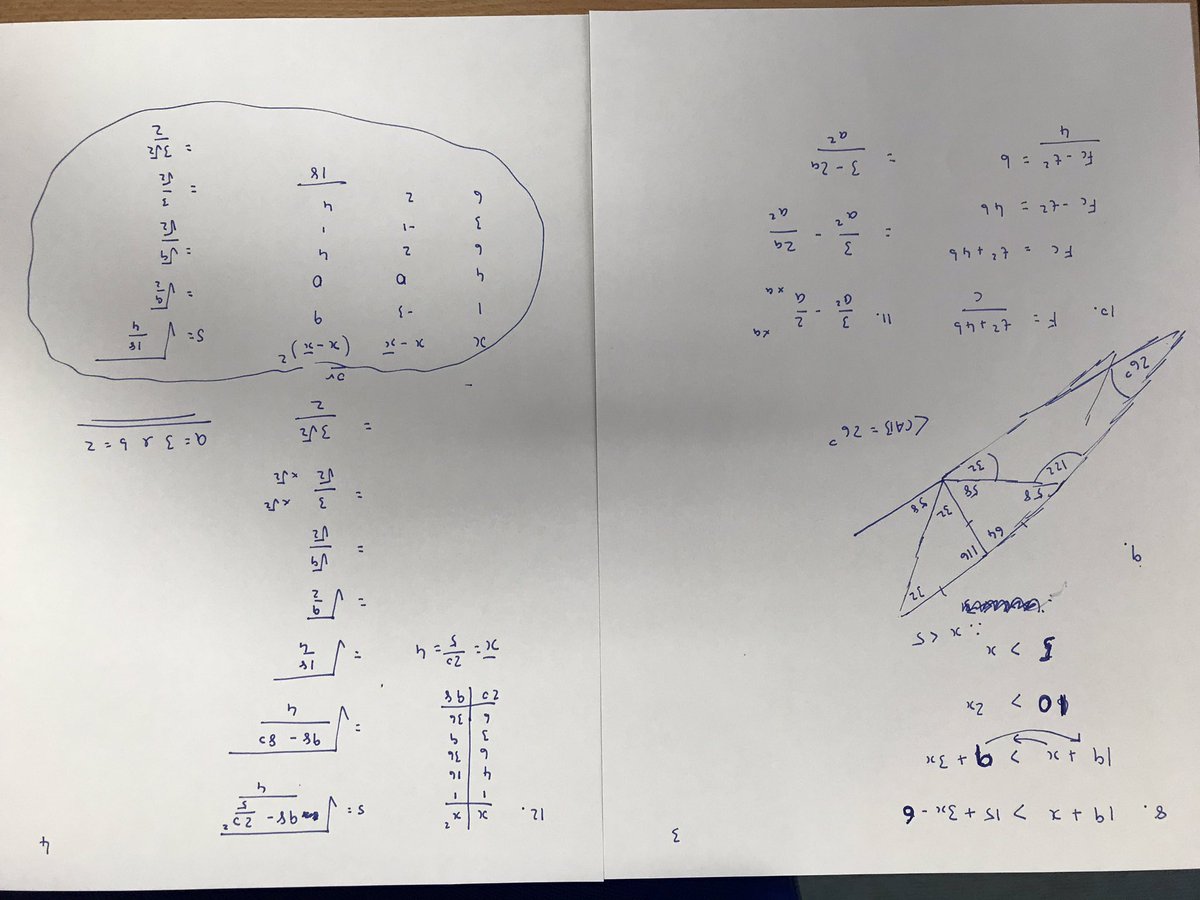 3
8. 19 + x > 15 + 3x - 6
19 + x > 9 + 3x
10 > 2x
5 > x
∴ x < 5
9.
32
116
64
32
58
58
58
122
32
26°
<CAB = 26°
10. F = (t² + 4b)/c
Fc = t² + 4b
Fc - t² = 4b
(Fc - t²)/4 = b
11. 3/a² - 2/a ×a ×a
= 3/a² - 2a/a²
= (3 - 2a)/a²
4
12.
x | x²
1 | 1
4 | 16
6 | 36
3 | 9
6 | 36
20 | 98
x̄ = 20/5 = 4
s = √((98 - 20²/5)/4)
= √((98 - 80)/4)
= √(18/4)
= √(9/2)
= √9/√2
= 3/√2 ×√2 ×√2
= 3√2/2
a = 3 r b = 2
or
x x - x̄ (x - x̄)²
1 -3 9
4 0 0
6 2 4
3 -1 1
6 2 4
18
s = √(18/4)
= √(9/2)
= √9/√2
= 3/√2
= 3√2/2